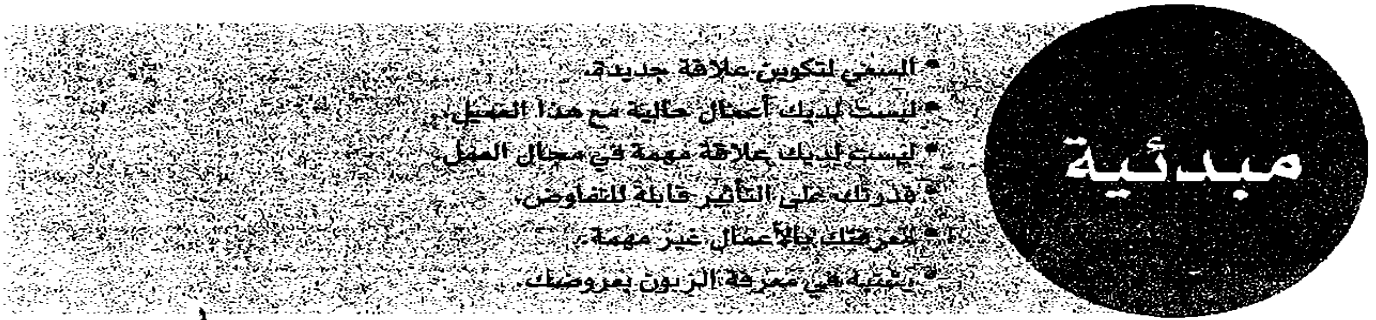 مبدئية
• السعي لتكوين علاقة جديدة.
• ليست لديك أعمال حالية مع هذا العميل.
• ليست لديك علاقة مهمة في مجال العمل.
• قدرتك على التأثير قابلة للتفاوض.
• معرفتك بالأعمال غير مهمة.
• يشتبه في معرفة الزبون بعروضك.